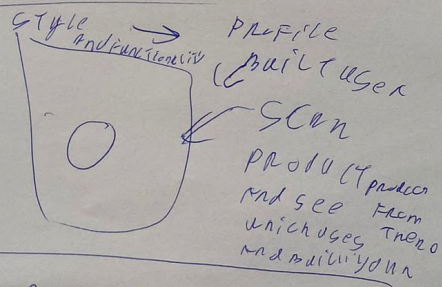 STYLE
And Functionality
PROFILE
BUILT USER
SCAN
PRODUCT product
And see From
which uses There
And Built your